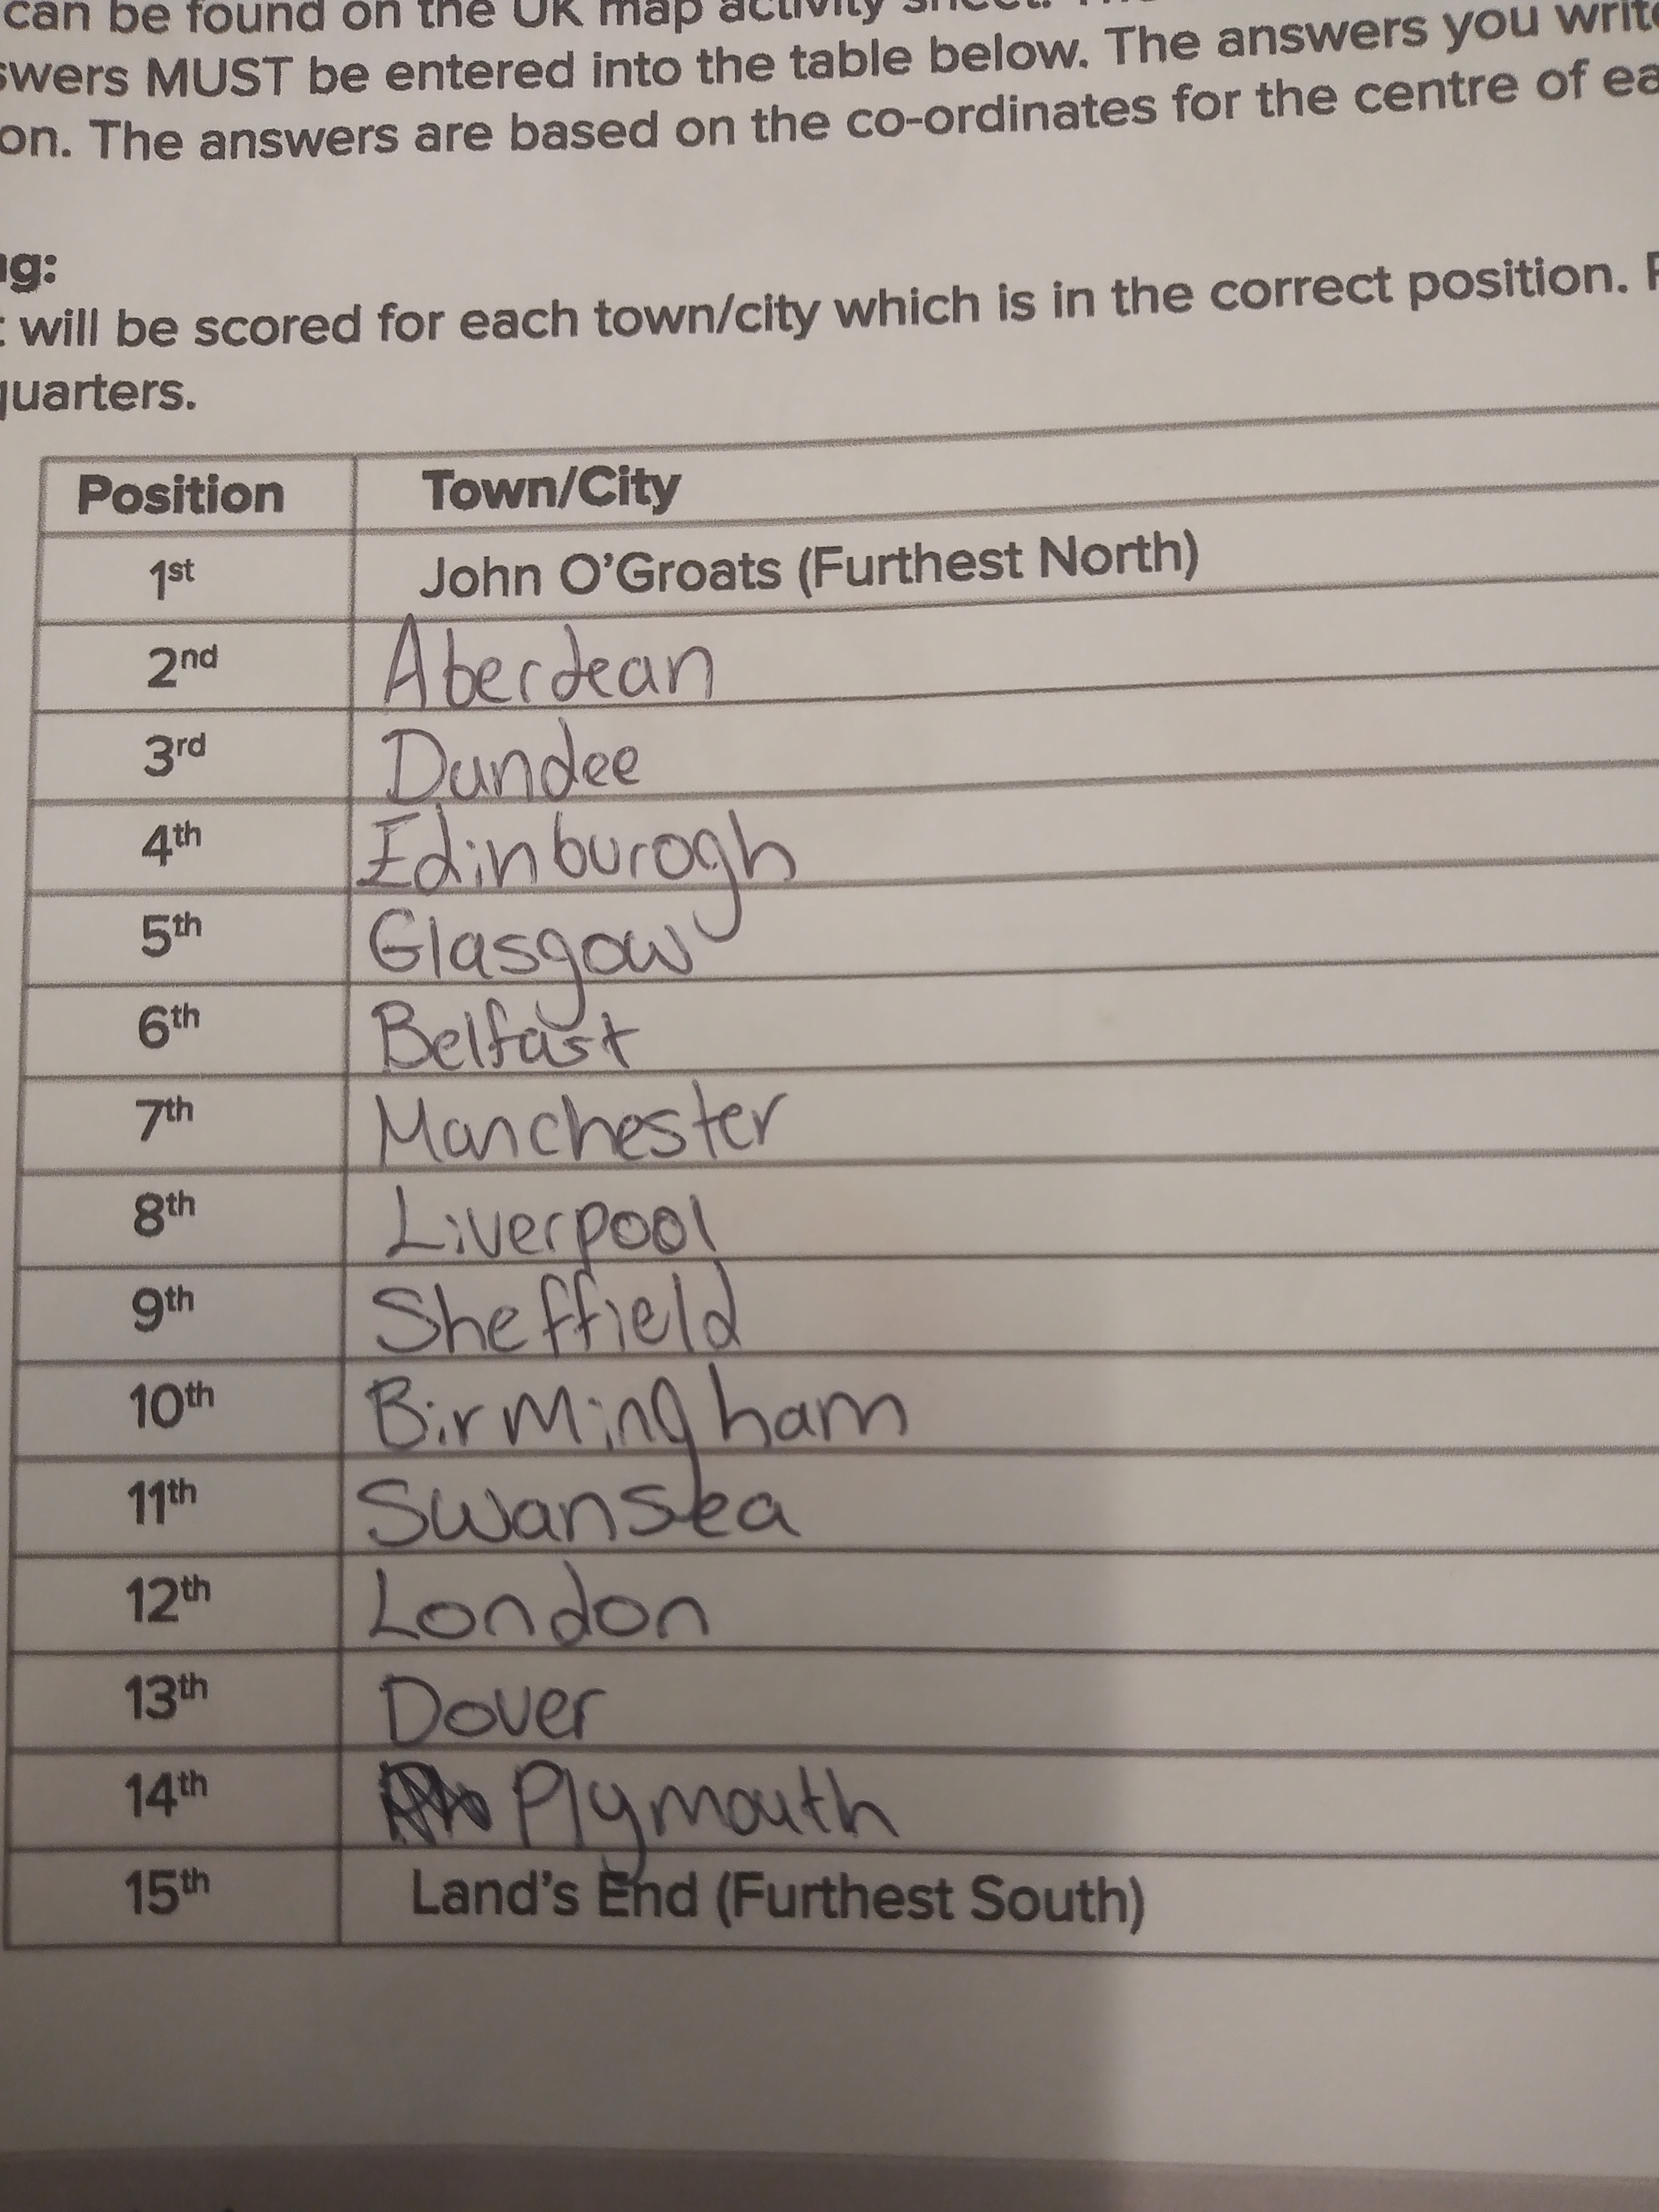 can be found on the UK map activity sheet.
swers MUST be entered into the table below. The answers you write
on. The answers are based on the co-ordinates for the centre of ea
ng:
t will be scored for each town/city which is in the correct position.
quarters.
Position Town/City
1st John O'Groats (Furthest North)
2nd Aberdean
3rd Dundee
4th Edinburogh
5th Glasgow
6th Belfast
7th Manchester
8th Liverpool
9th Sheffield
10th Birmingham
11th Swansea
12th London
13th Dover
14th Plymouth
15th Land's End (Furthest South)